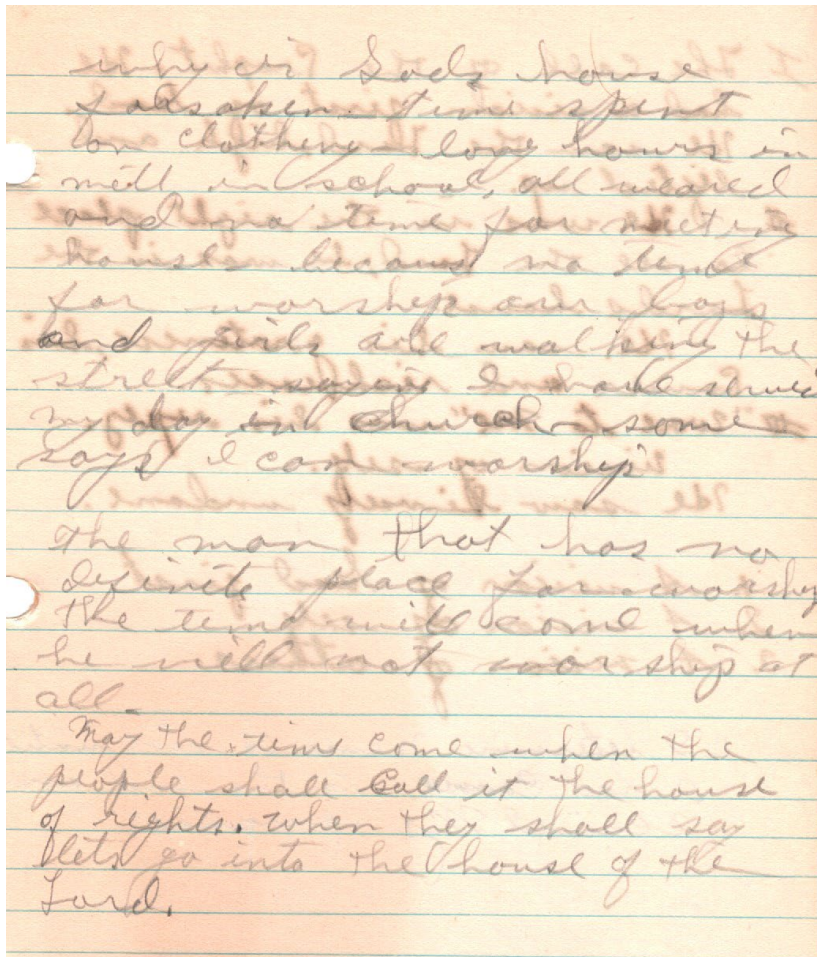 why is Gods house
forsaken - time spent
on clothing long hours in
mill in school, all weared
and no time for
houses because no time
for worship our boys
and girls are walking the
street saying I have served
my day in church - some
says I can worship
The man that has no
definite place for worship
the time will come when
he will not worship at
all -
May the time come when the
people shall call it the house
of rights. when they shall say
lets go into the house of the
Lord.